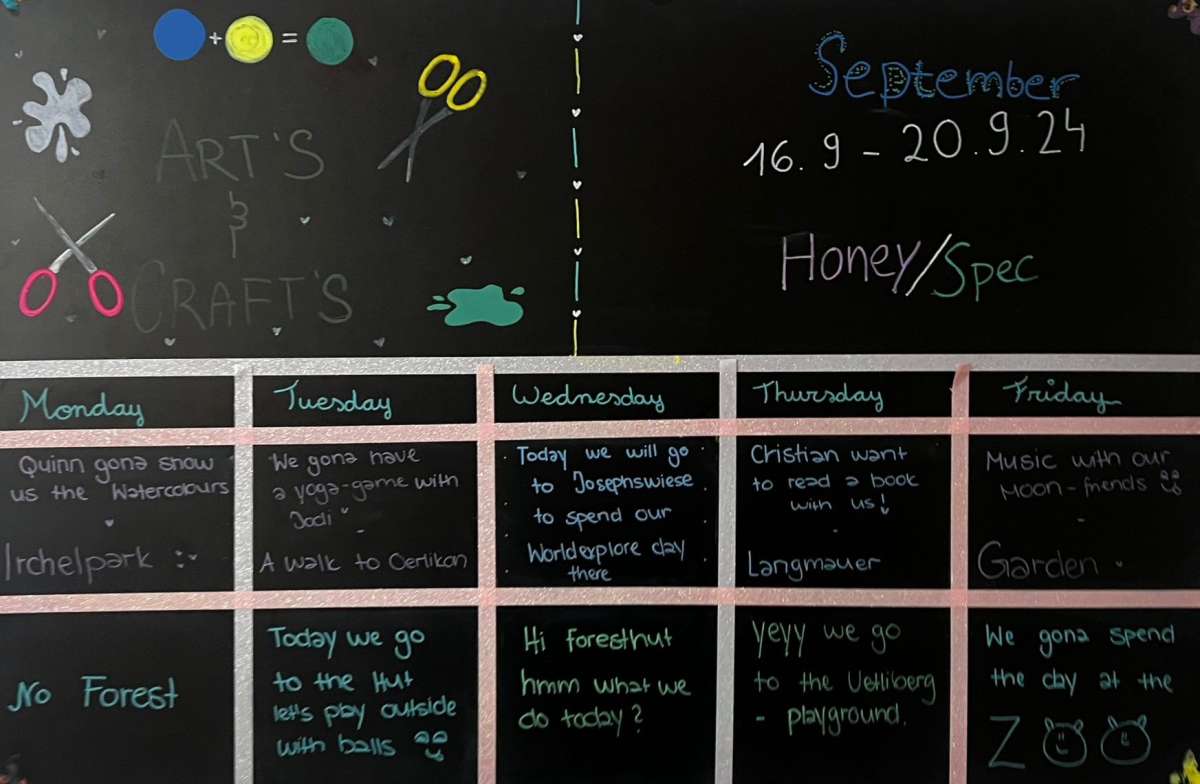 + =
ART'S
&
CRAFT'S
September
16.9 - 20.9.24
Honey/Spec
Monday
Tuesday
Wednesday
Thursday
Friday
Quinn gona show
us the Watercolours
Irchelpark :
We gona have
a yoga-game with
Jodi
A walk to Oerlikon
Today we will go
to Josephswiese
to spend our
Worldexplore day
there
Cristian want
to read a book
with us!
Langmauer
Music with our
Moon-friends
Garden
No Forest
Today we go
to the Hut
let's play outside
with balls
Hi foresthut
hmm what we
do today?
Yeyy we go
to the Uetliberg
- playground.
We gona spend
the day at the
ZOO